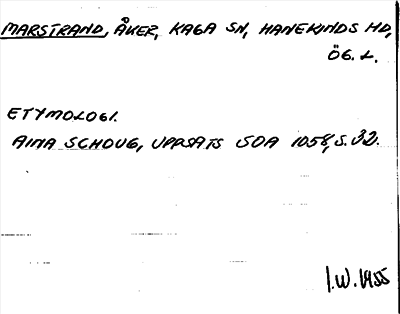 MARSTRAND, ÅKER, KAGA SN, HANEKINDS HD,
ÖG. L.
ETYMOLOGI.
AINA SCHOUG, UPPSATS SOA 1058, S. 32.
I.W. 1955